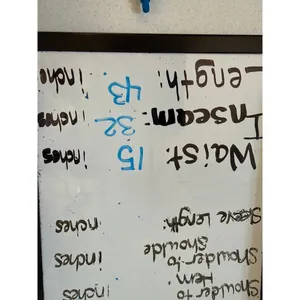 Shoulder to inches
Hem:
Shoulder to inches
Shoulde
Sleeve Length: nches
Waist: 15 inches
Inseam: 32 inches
Length: 43 inche